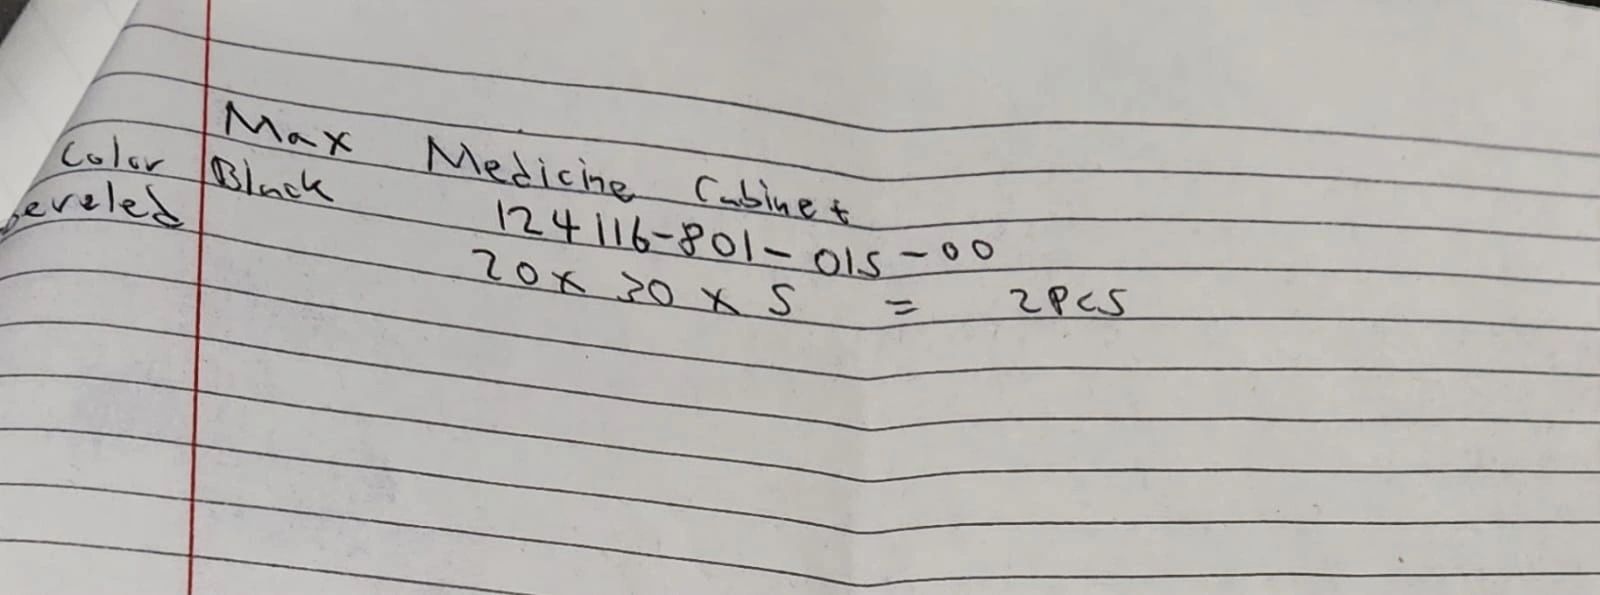 Max Medicine Cabinet
Color Black
beveled
124116-801-015-00
20 x 30 x 5 = 2PCS